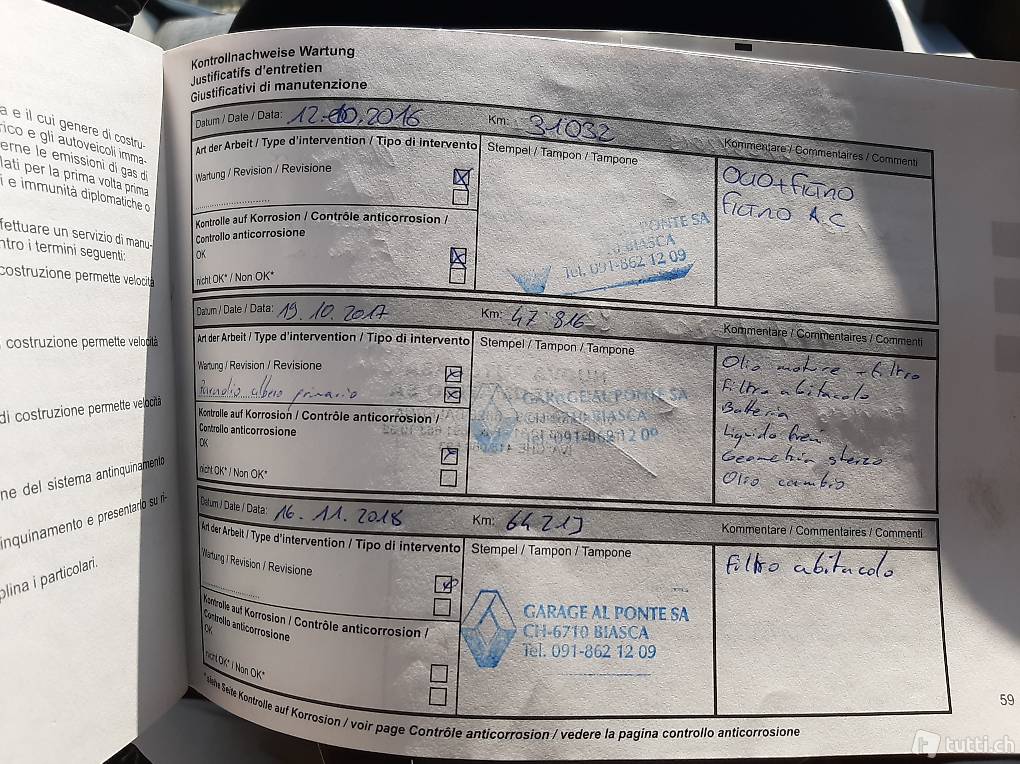 a e il cui genere di costru-
rico e gli autoveicoli imma-
erne le emissioni di gas di
lati per la prima volta prima
i e immunità diplomatiche o
fettuare un servizio di manu-
ntro i termini seguenti:
costruzione permette velocità
costruzione permette velocità
di costruzione permette velocità
ne del sistema antinquinamento
inquinamento e presentarlo su ri-
plina i particolari.
Kontrollnachweise Wartung
Justificatifs d'entretien
Giustificativi di manutenzione
Datum / Date / Data: 12.10.2016 Km: 31032
Art der Arbeit / Type d'intervention / Tipo di intervento
Stempel / Tampon / Tampone
Kommentare / Commentaires / Commenti
Wartung / Revision / Revisione
Kontrolle auf Korrosion / Contrôle anticorrosion /
Controllo anticorrosione
OK
nicht OK* / Non OK*
PONTE SA
BIASCA
Tel. 091-862 12 09
OLIO + FILTRO
FILTRO A.C
Datum / Date / Data: 19.10.2017 Km: 47 816
Art der Arbeit / Type d'intervention / Tipo di intervento
Stempel / Tampon / Tampone
Kommentare / Commentaires / Commenti
Wartung / Revision / Revisione
Paraolio albero primario
Kontrolle auf Korrosion / Contrôle anticorrosion /
Controllo anticorrosione
OK
nicht OK* / Non OK*
GARAGE AL PONTE SA
BIASCA
Olio motore + filtro
Filtro abitacolo
Batteria
Liquido freni
Geometria sterzo
Olio cambio
Datum / Date / Data: 16.11.2018 Km: 64219
Art der Arbeit / Type d'intervention / Tipo di intervento
Stempel / Tampon / Tampone
Kommentare / Commentaires / Commenti
Wartung / Revision / Revisione
Kontrolle auf Korrosion / Contrôle anticorrosion /
Controllo anticorrosione
OK
nicht OK* / Non OK*
GARAGE AL PONTE SA
CH-6710 BIASCA
Tel. 091-862 12 09
Filtro abitacolo
*siehe Seite Kontrolle auf Korrosion / voir page Contrôle anticorrosion / vedere la pagina controllo anticorrosione
59
tutti.ch